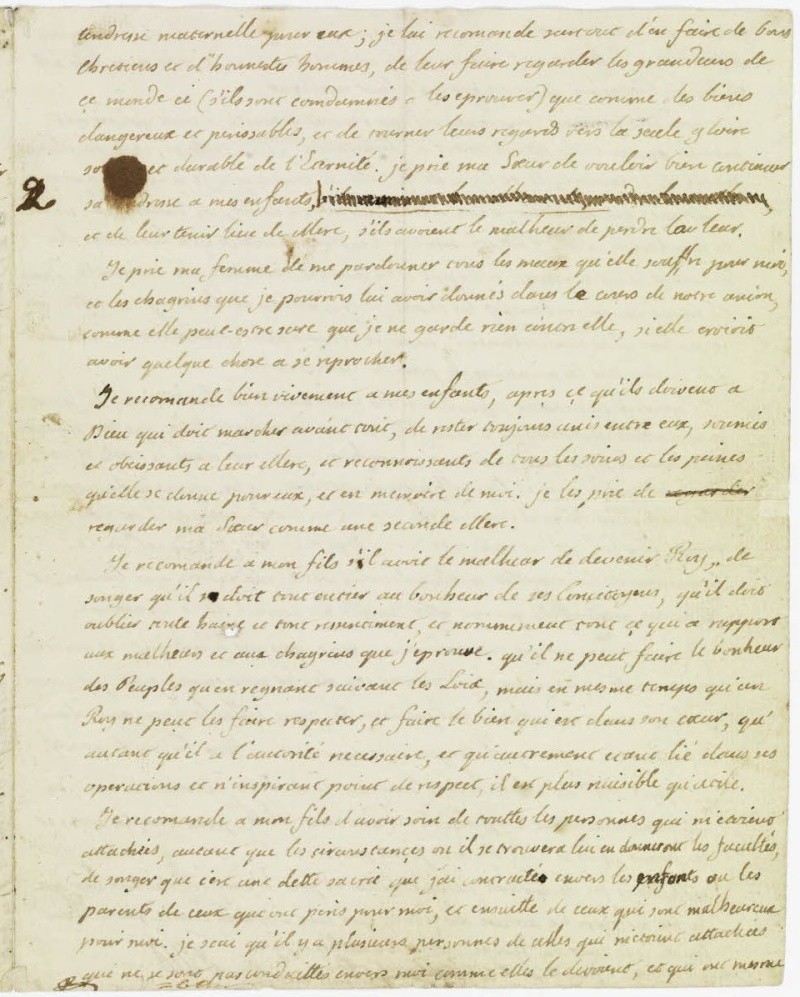 tendresse maternelle pour eux; je lui recomande surtout d'en faire de bons
Chretiens et d'honnestes hommes, de leur faire regarder les grandeurs de
ce monde ci (s'ils sont condamnés a les eprouver) que comme des biens
dangereux et perissables, et de tourner leurs regards vers la seule gloire
so et durable de l'Eternité. je prie ma Sœur de vouloir bien continuer
sa dresse a mes enfants,
et de leur tenir lieu de Mere, s'ils avoient le malheur de perdre la leur.
Je prie ma femme de me pardonner tous les maux qu'elle souffre pour moi,
et les chagrins que je pourrois lui avoir donnés dans le cours de notre union,
comme elle peut-estre sure que je ne garde rien contre elle, si elle croioit
avoir quelque chose a se reprocher.
Je recomande bien vivement a mes enfants, apres ce qu'ils doivent a
Dieu qui doit marcher avant tout, de rester toujours unis entre eux, soumis
et obeissants a leur Mere, et reconnoissants de tous les soins et les peines
qu'elle se donne pour eux, et en memoire de moi. je les prie de regarder
regarder ma Sœur comme une seconde Mere.
Je recomande a mon fils s'il avoit le malheur de devenir Roy, de
songer qu'il se doit tout entier au bonheur de ses Concitoyens, qu'il doit
oublier toute haine et tout ressentiment, et nommement tout ce qui a rapport
aux malheurs et aux chagrins que j'eprouve. qu'il ne peut faire le bonheur
des Peuples qu'en regnant suivant les Loix, mais en mesme temps qu'un
Roy ne peut les faire respecter, et faire le bien qui est dans son cœur, qu'
autant qu'il a l'autorité necessaire, et qu'autrement etant lié dans ses
operations et n'inspirant point de respect, il est plus nuisible qu'utile.
Je recomande a mon fils d'avoir soin de touttes les personnes qui m'etoient
attachées, autant que les circonstances ou il se trouvera lui en donneront les facultés,
de songer que c'est une dette sacrée que j'ai contractée envers les enfants ou les
parents de ceux qui ont peris pour moi, et ensuitte de ceux qui sont malheureux
pour moi. je scai qu'il y a plusieurs personnes de celles qui m'etoient attachées
qui ne se sont pas conduittes envers moi comme elles le devoient, et qui ont mesme